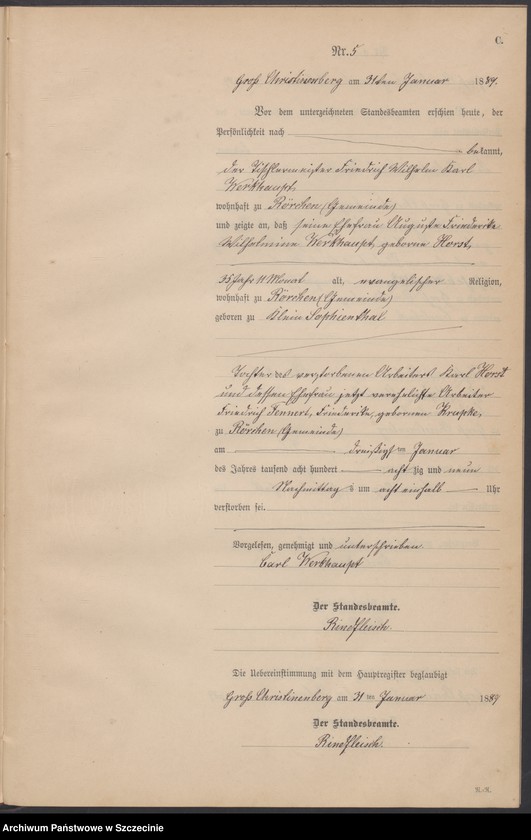 C.
Nr. 5
Groß Christinenberg am 31ten Januar 1889.
Vor dem unterzeichneten Standesbeamten erschien heute, der
Persönlichkeit nach
bekannt,
der Tischlermeister Friedrich Wilhelm Karl
Werkhaupt,
wohnhaft zu Rörchen (Gemeinde)
und zeigte an, daß seine Ehefrau Auguste Friederike
Wilhelmine Werkhaupt, geborne Horst,
35 Jahr 11 Monat alt, evangelischer Religion,
wohnhaft zu Rörchen (Gemeinde)
geboren zu Klein Sophienthal
Tochter des verstorbenen Arbeiters Karl Horst
und dessen Ehefrau jetzt verehelichte Arbeiter
Friedrich Friederike gebornen
zu Rörchen (Gemeinde)
am dreißigsten Januar
des Jahres tausend acht hundert achtzig und neun
Nachmittags um acht einhalb Uhr
verstorben sei.
Vorgelesen, genehmigt und unterschrieben
Carl Werkhaupt
Der Standesbeamte.
Rindfleisch.
Die Uebereinstimmung mit dem Hauptregister beglaubigt
Groß Christinenberg am 31ten Januar 1889
Der Standesbeamte.
Rindfleisch.
Archiwum Państwowe w Szczecinie